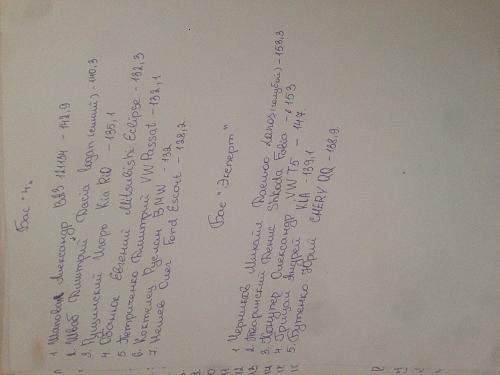 Бас "4"
1 Шаповал Александр ВАЗ 21134 - 142,9
2. Швец Дмитрий Dacia logan (синий) - 140,3
3. Пушинский Игорь Kia RiO - 135,1
4. Обанюк Евгений Mitsubishi Eclipse - 132,3
5 Петриченко Дмитрий VW Passat - 132,1
6. Коктелец Руслан BMW - 132
7 Нешев Олег Ford Escort - 128,2
Бас "Эксперт"
1 Черников Михаил Daewoo Lanos (голубой) - 158,3
2. Тваринский Денис Shkoda Fabia - 153
3. Александр VW T5 - 147
4. Грицай Андрей KIA - 139,1
5. Бутенко Юрий CHERY QQ - 138,9